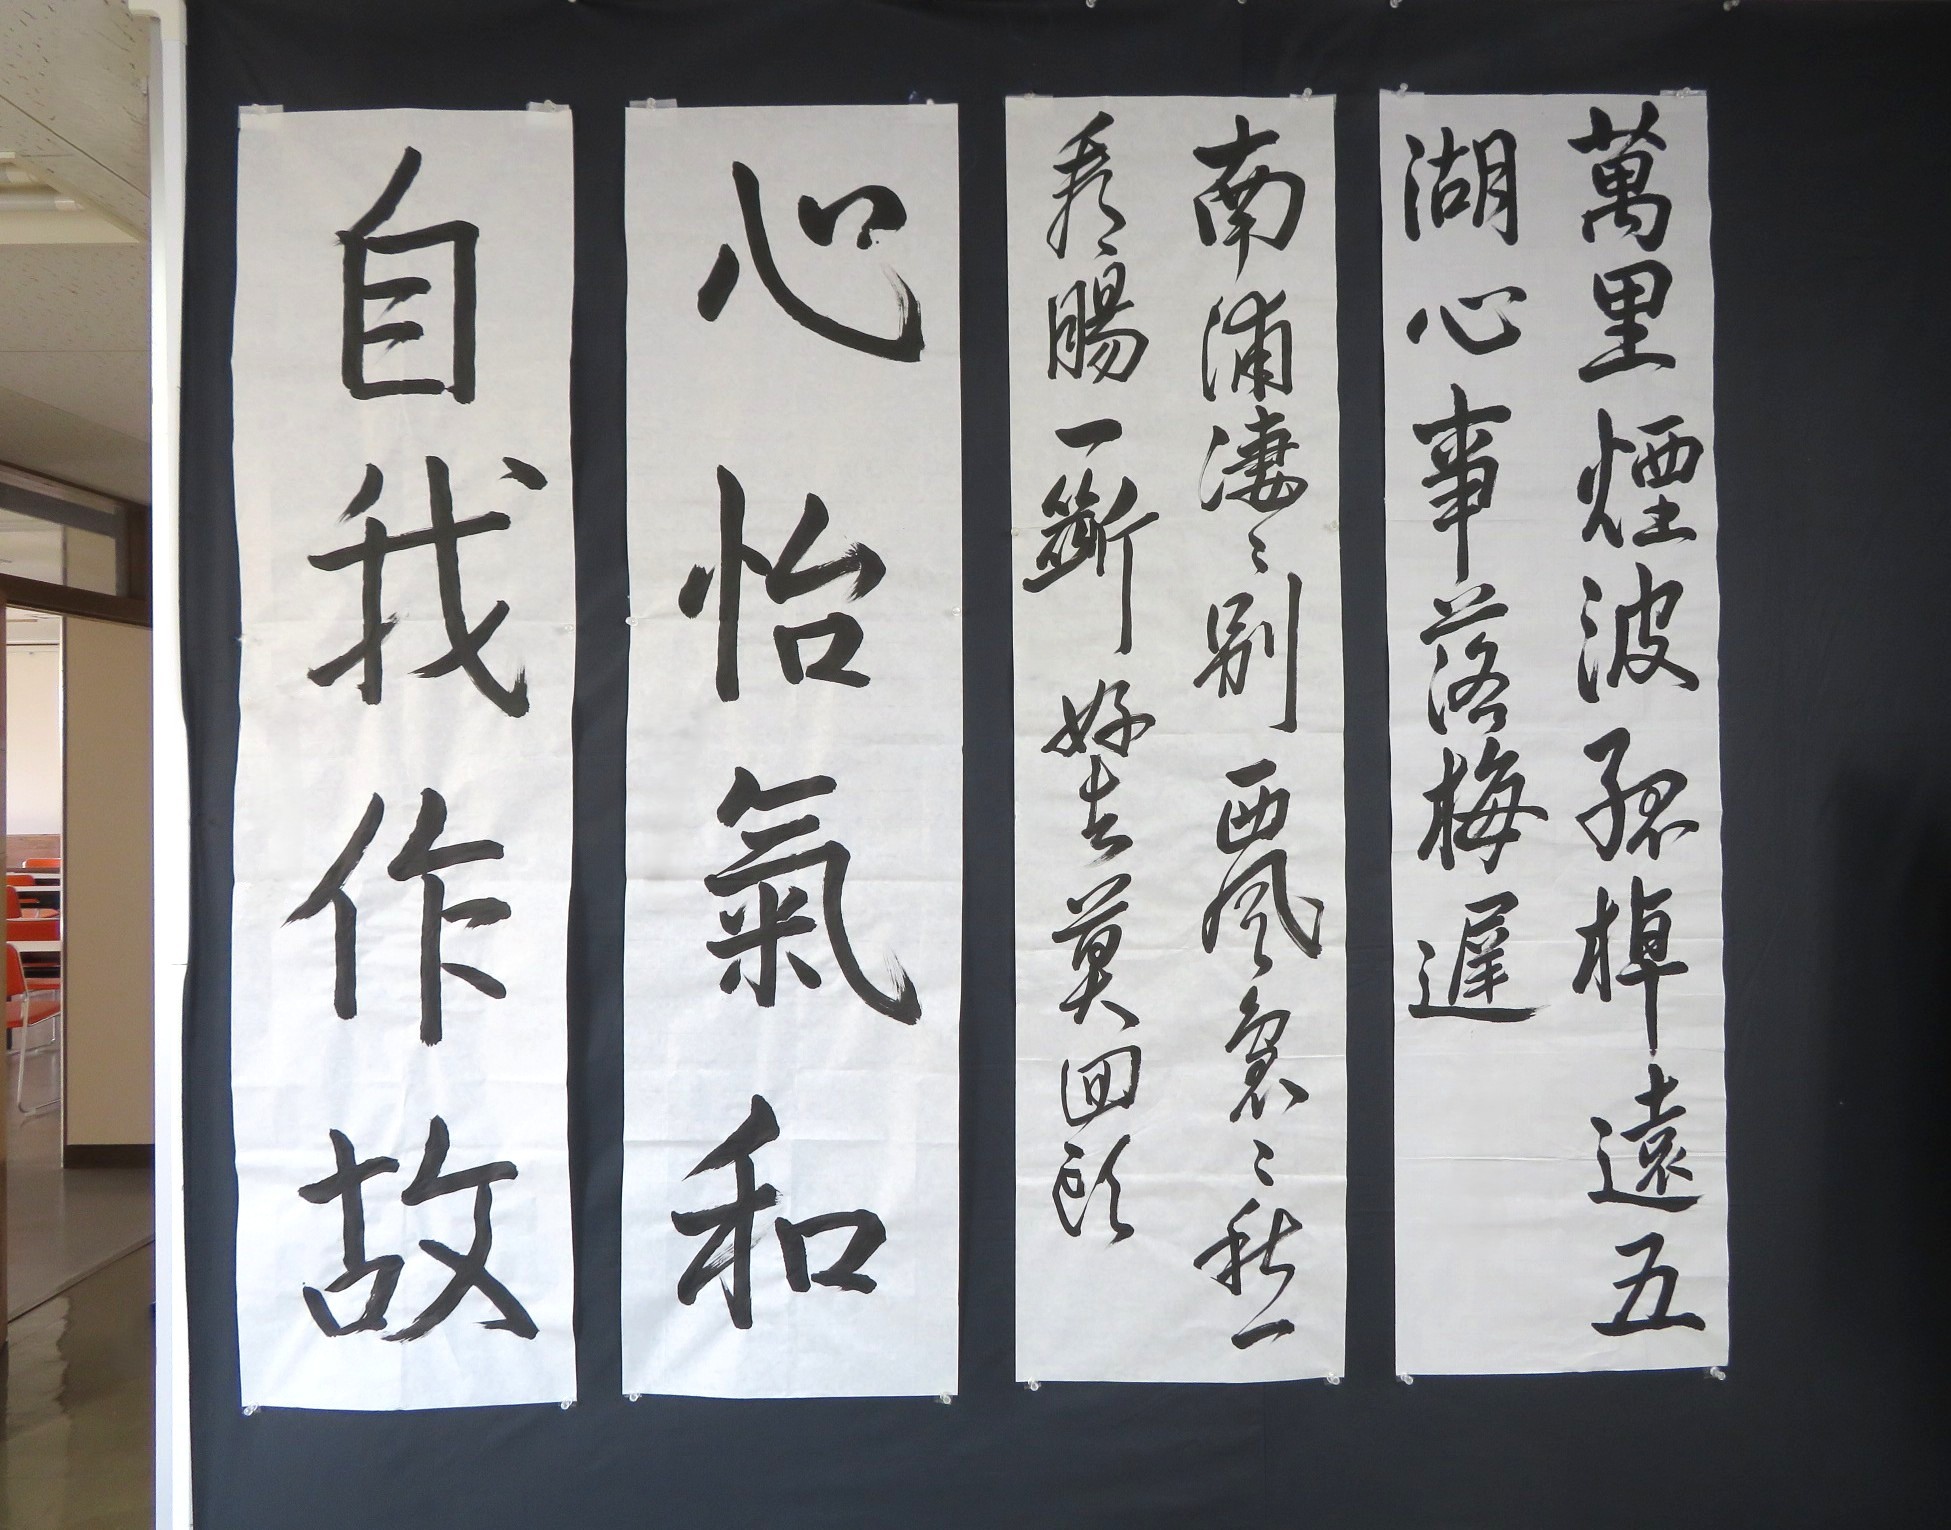 萬里煙波孤棹遠五
湖心事落梅遲
南浦淒〻別西風裊〻秋一
看腸一斷好去莫回頭
心怡氣和
自我作故